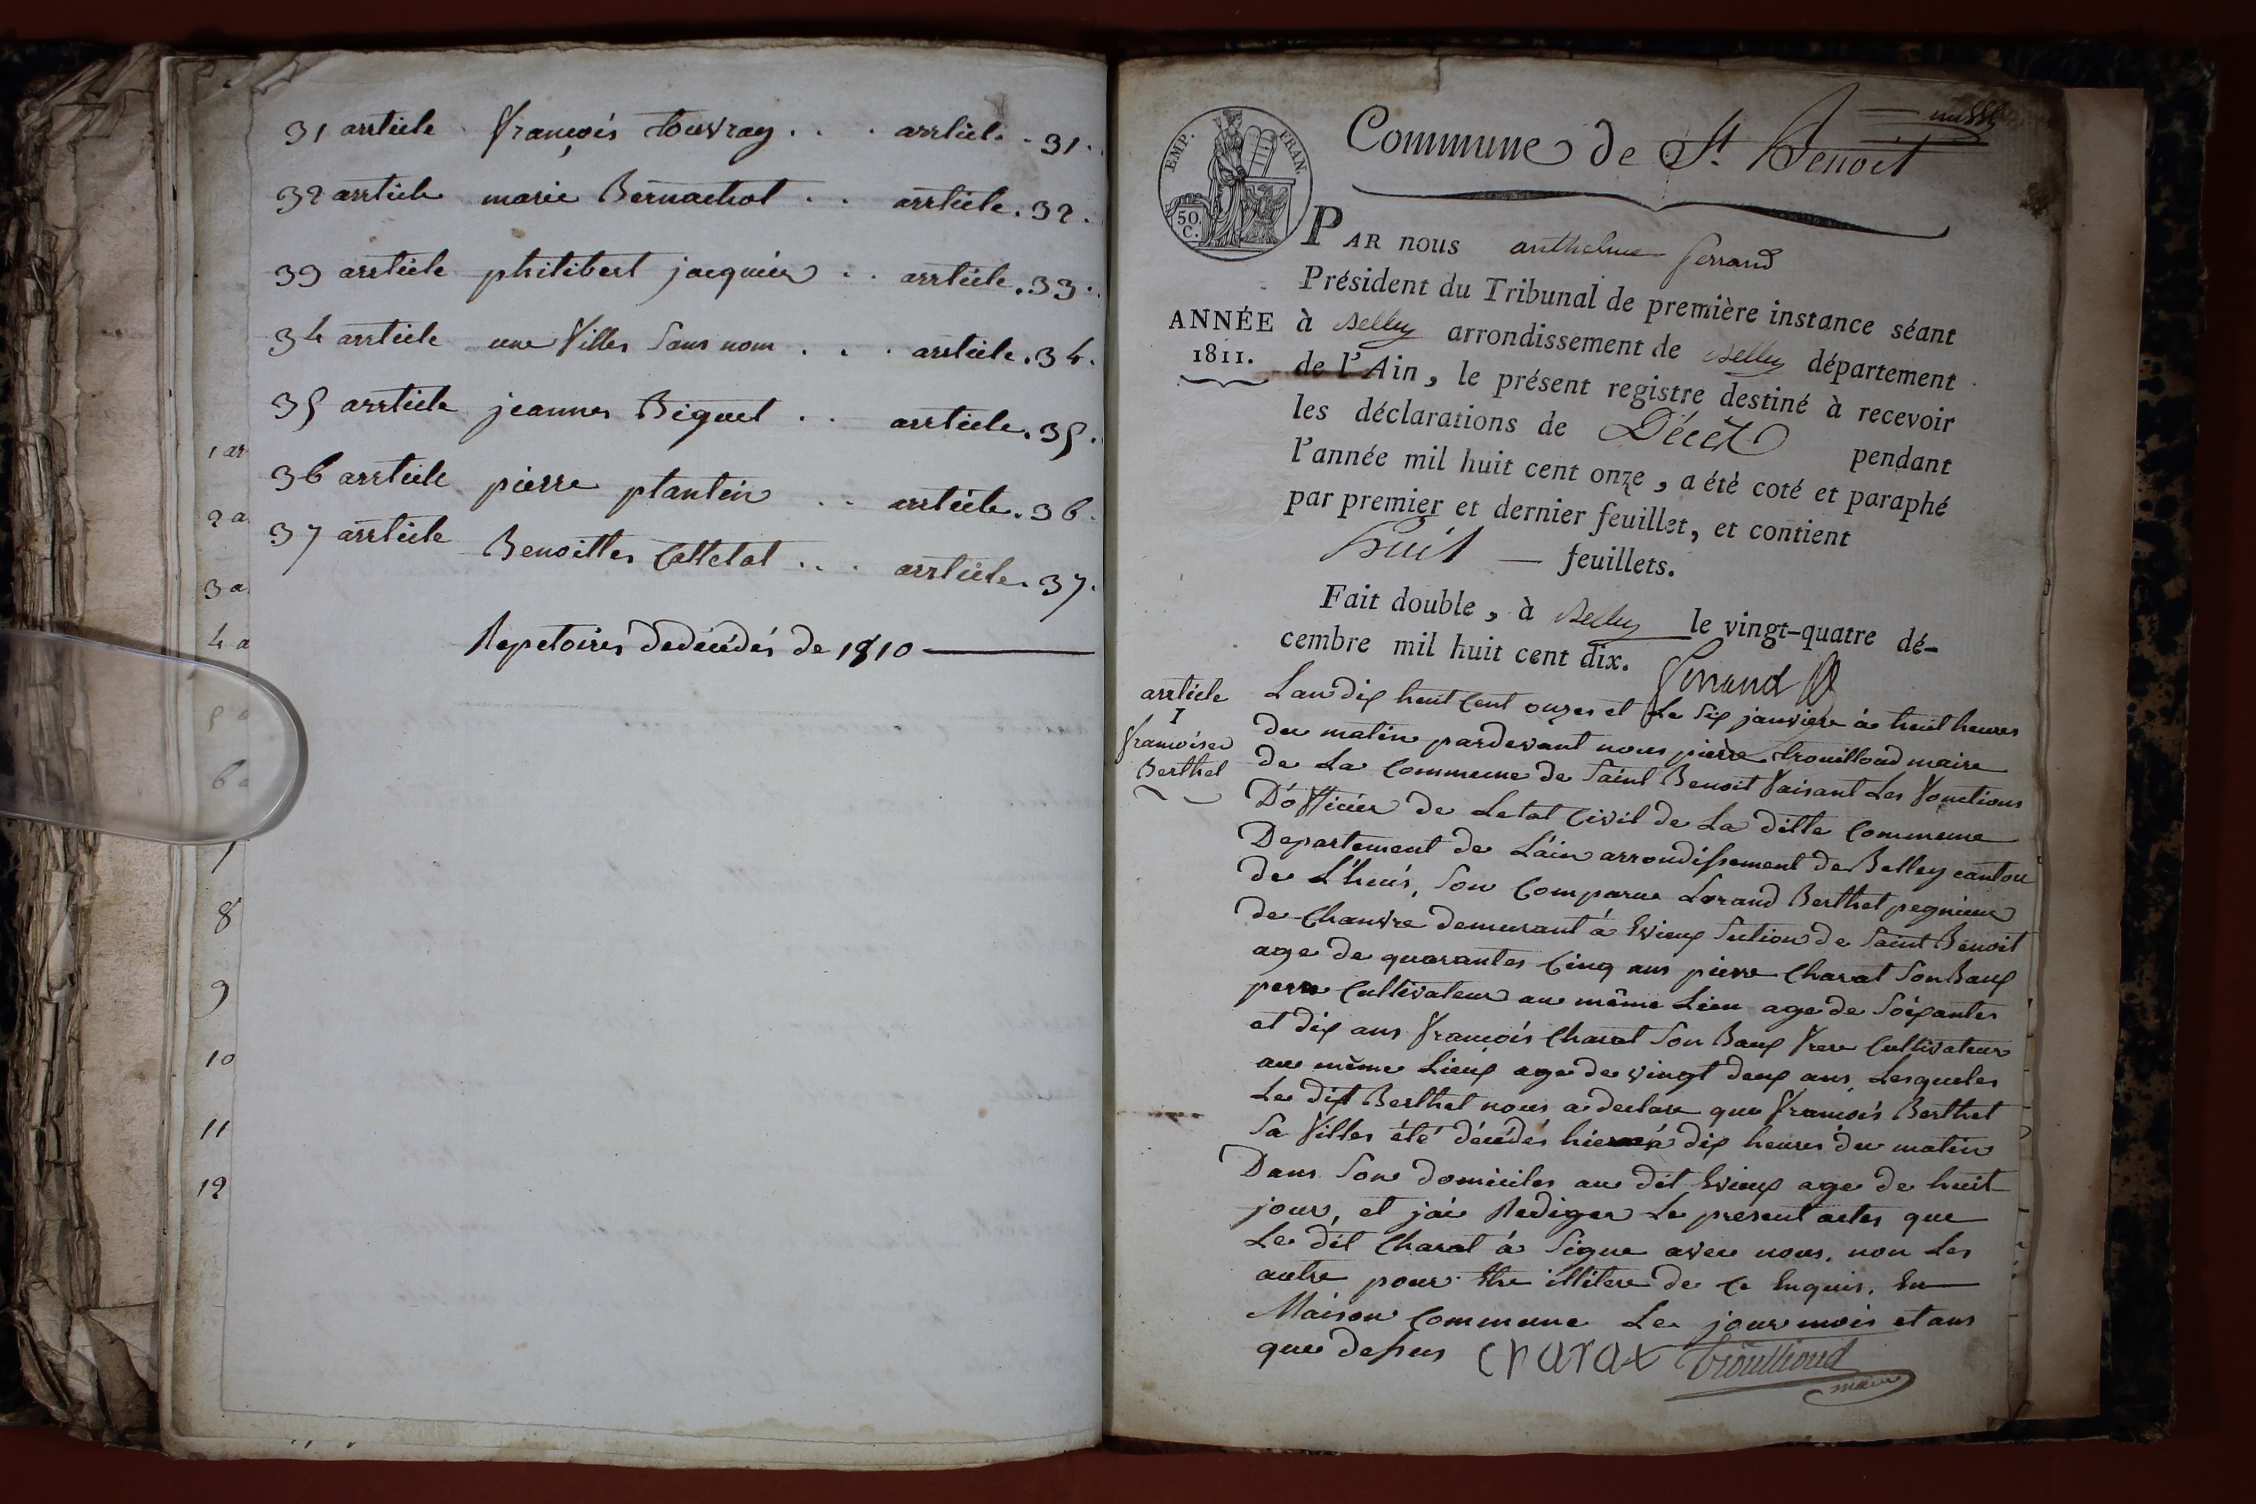 31 artticle françois touvray . . . artticle . 31 .
32 artticle marie Bernachot . . artticle . 32 .
33 artticle philibert jacquier . . artticle . 33 .
34 artticle une filles Sans nom . . . artticle . 34 .
35 artticle jeannes Biguet . . artticle . 35 .
36 artticle pierre plantin . . artticle . 36 .
37 artticle Benoittes Cottetat . . . artticle . 37 .
Repetoires dedécédés de 1810
1 ar
2 a
3 a
4 a
5 a
6 a
7
8
9
10
11
12
EMP. FRAN.
50 C.
Commune de St. Benoit
PAR nous anthelme ferrand
Président du Tribunal de première instance séant
ANNÉE 1811.
à Belley arrondissement de Belley département
de l'Ain, le présent registre destiné à recevoir
les déclarations de Décès pendant
l'année mil huit cent onze, a été coté et paraphé
par premier et dernier feuillet, et contient
huit — feuillets.
Fait double, à Belley le vingt-quatre dé-
cembre mil huit cent dix. ferrand
artticle
I
françoises
Berthet
Lan dix huit Cent onzes et Le Six janvier à huit heures
du matin pardevant nous pierre trouilloud maire
de La Commune de Saint Benoit faisant Les fonctions
D'officier de Letat Civil de La ditte Commune
Departement de L'ain arrondissement de Belley canton
de L'huis, Son Comparue Lorand Berthet pegnieur
de Chanvre demeurant à Evieux Section de Saint Benoit
age de quarantes Cinq ans pierre Charat Son Baux
perre Cultivateur au même Lieu age de Soixantes
et dix ans françois Charat Son Baux frere Cultivateur
au même Lieux age de vingt deux ans, Lesqueles
Le dit Berthet nous a declare que françois Berthet
Sa filles été décédés hier à dix heures du matin
Dans Son domiciles au dit Evieux age de huit
jour, et jai Rediger Le present actes que
Le dit Charat à Signe avec nous, non Les
autre pour Etre illitere de Ce Enquis. En
Maison Commune Le jour mois et ans
que dessus Charat trouilloud
maire